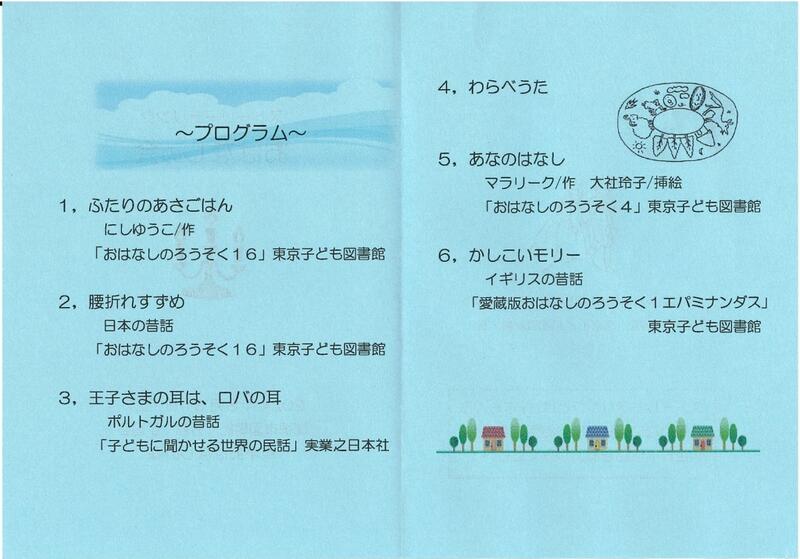 ～プログラム～
1，ふたりのあさごはん
にしゆうこ/作
「おはなしのろうそく１６」東京子ども図書館
2，腰折れすずめ
日本の昔話
「おはなしのろうそく１６」東京子ども図書館
3，王子さまの耳は、ロバの耳
ポルトガルの昔話
「子どもに聞かせる世界の民話」実業之日本社
4，わらべうた
5，あなのはなし
マラリーク/作　大社玲子/挿絵
「おはなしのろうそく４」東京子ども図書館
6，かしこいモリー
イギリスの昔話
「愛蔵版おはなしのろうそく１エパミナンダス」
東京子ども図書館